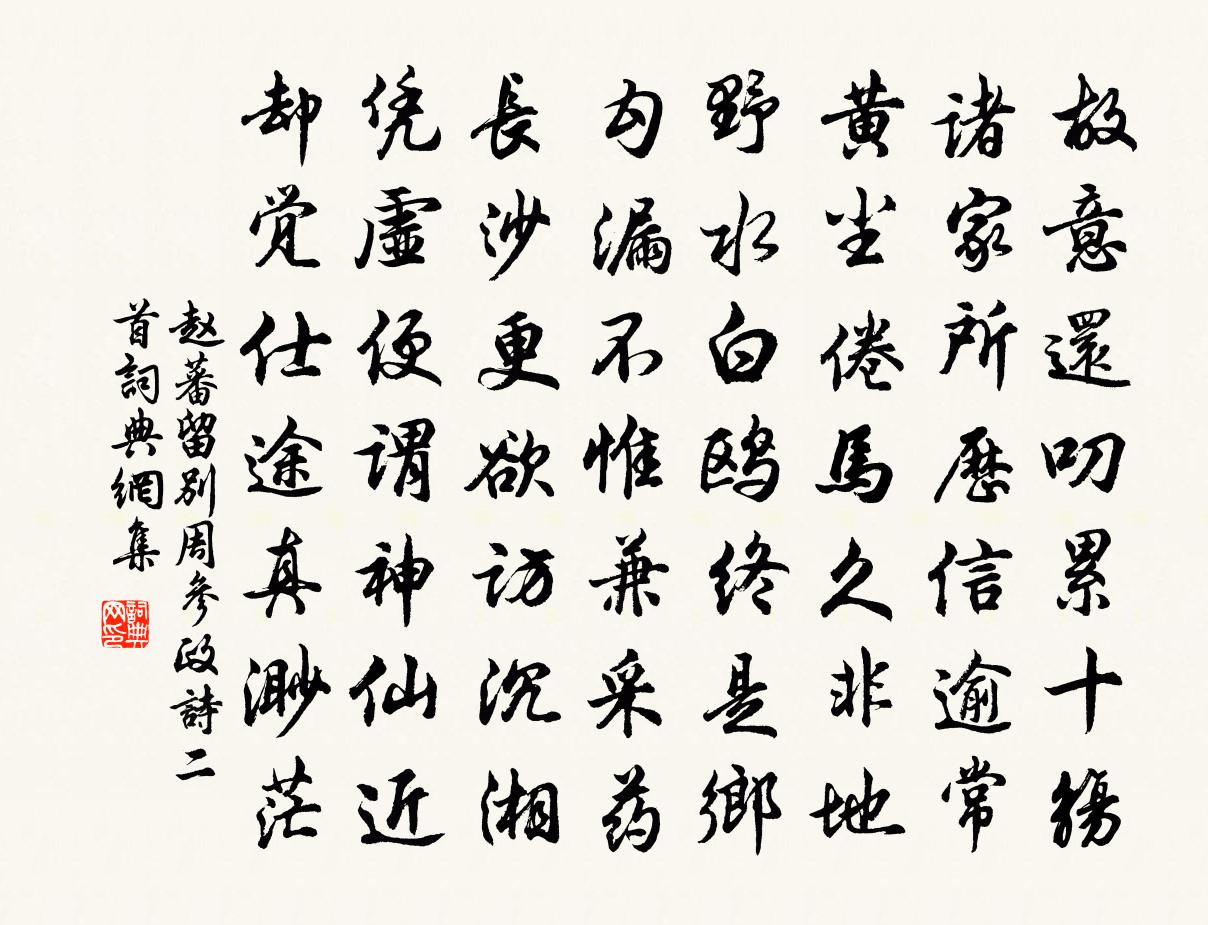 故意還叨累十觴
諸家所歷信逾常
黄尘倦馬久非地
野水白鸥终是鄉
勾漏不惟兼采药
長沙更欲訪沉湘
凭虛便謂神仙近
却觉仕途真渺茫
赵蕃留别周參政詩二
首詞典網集
詞典网印